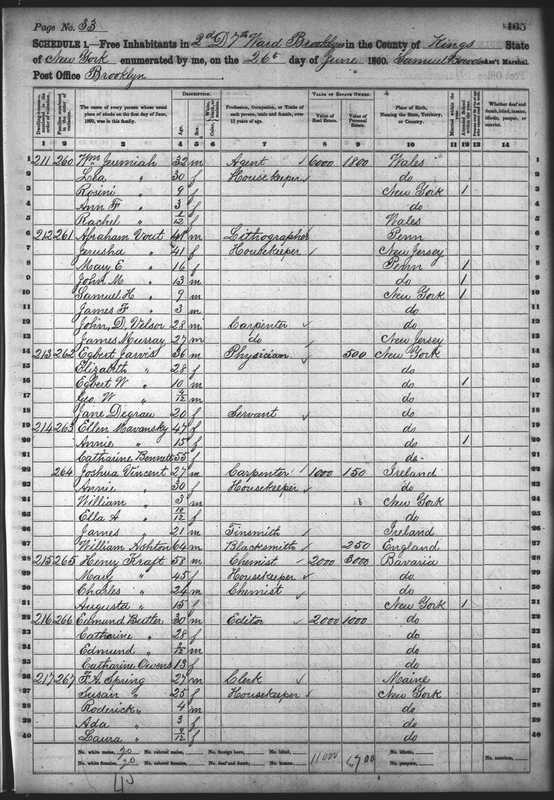 Page No. 33
165
SCHEDULE 1.—Free Inhabitants in 2d D 7th Ward Brooklyn in the County of Kings State
of New York enumerated by me, on the 26th day of June 1860. Samuel Ass't Marshal.
Post Office Brooklyn
DESCRIPTION. VALUE OF ESTATE OWNED.
The name of every person whose usual place of abode on the first day of June, 1860, was in this family. Age. Sex. Profession, Occupation, or Trade of each person, male and female, over 15 years of age. Value of Real Estate. Value of Personal Estate. Place of Birth, Naming the State, Territory, or Country. Whether deaf and dumb, blind, insane, idiotic, pauper, or convict.
1 2 3 4 5 6 7 8 9 10 11 12 13 14
1 211 260 Wm Jeumiah 32 m Agent 6000 1800 Wales
2 Lea " 30 f Housekeeper do
3 Rosini " 9 f New York 1
4 Ann F " 3 f do
5 Rachel " f Wales
6 212 261 Abraham Vout m Lithographer Penn
7 Jerusha " 41 f Housekeeper New Jersey
8 Mary E " 16 f Penn 1
9 John M " 13 m do 1
10 Samuel H " 9 m New York 1
11 James F " 3 m do
12 John D. Velsor 28 m Carpenter do
13 James Murray 27 m do New Jersey
14 213 262 Egbert Jarvis 36 m Physician 500 New York
15 Elizabeth " 28 f do
16 Egbert W " 10 m do 1
17 Geo. W " m do
18 Jane Degrau 20 f Servant do
19 214 263 Ellen Mavansky 47 f do
20 Annie " 15 f do 1
21 Catharine Bennett 55 f do
22 264 Joshua Vincent 27 m Carpenter 1000 150 Ireland
23 Annie " 30 f Housekeeper do
24 William " 3 m New York
25 Ella A " 10/12 f do
26 James " 21 m Tinsmith Ireland
27 William Ashton 64 m Blacksmith 250 England
28 215 265 Henry Kraft 58 m Chemist 2000 3000 Bavaria
29 Mary " 45 f Housekeeper do
30 Charles " 24 m Chemist do
31 Augusta " 15 f New York 1
32 216 266 Edmund Butler 30 m Editor 2000 1000 do
33 Catharine " 28 f do
34 Edmund " m do
35 Catharine Owens 13 f do
36 217 267 F. A. Spring 27 m Clerk Maine
37 Susan " 25 f Housekeeper New York
38 Roderick " 4 m do
39 Ada " 3 f do
40 Laura " f do
No. white males, 20 No. colored males, No. foreign born, No. blind, 11000 6700 No. idiotic, No. convicts,
No. white females, 20 No. colored females, No. deaf and dumb, No. insane, No. paupers,